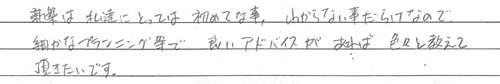 新築は私達にとっては初めてな事、わからない事だらけなので
細かなプランニング等で良いアドバイスがあれば色々と教えて
頂きたいです。